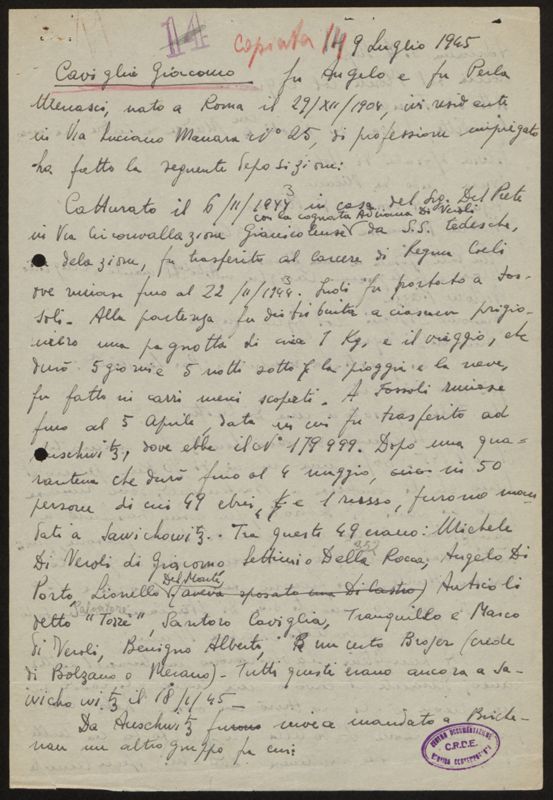 14 copiata 14 9 Luglio 1945
Caviglia Giacomo fu Angelo e fu Perla
Menasci, nato a Roma il 29/XII/1904, ivi residente
in Via Luciano Manara N° 25, di professione impiegato
ha fatto la seguente deposizione:
Catturato il 6/II/1944 3 in casa del Sig. Del Prete
con la cognata Adriana Di Veroli
in Via Circonvallazione Gianicolense da S.S. tedesche,
delazione, fu trasferito al carcere di Regina Coeli
ove rimase fino al 22/II/1944 3. Indi fu portato a Fos-
soli. Alla partenza fu distribuita a ciascun prigio-
niero una pagnotta di circa 1 Kg, e il viaggio, che
durò 5 giorni e 5 notti sotto la pioggia e la neve,
fu fatto in carri merci scoperti. A Fossoli rimase
fino al 5 Aprile, data in cui fu trasferito ad
Auschwitz, dove ebbe il N° 179999. Dopo una qua=
rantena che durò fino al 4 maggio, circa in 50
persone di cui 49 ebrei, e 1 russo, furono man
dati a Jawichowitz. Tra questi 49 erano: Michele
Di Veroli di Giacomo Settimio Della Rocca, Angelo Di
Del Monte,
Porto, Lionello (aveva sposato una Di Castro) Anticoli
Salvatore
detto "Torre", Santoro Caviglia, Tranquillo e Marco
Di Veroli, Benigno Alberti, un certo Brojer (crede
di Bolzano o Merano). Tutti questi erano ancora a Ja-
wichowitz il 18/I/45
Da Auschwitz furono invece mandato a Birche-
nau un altro gruppo fra cui:
CENTRO DOCUMENTAZIONE
C.R.D.E.
EBRAICA CONTEMPORANEA